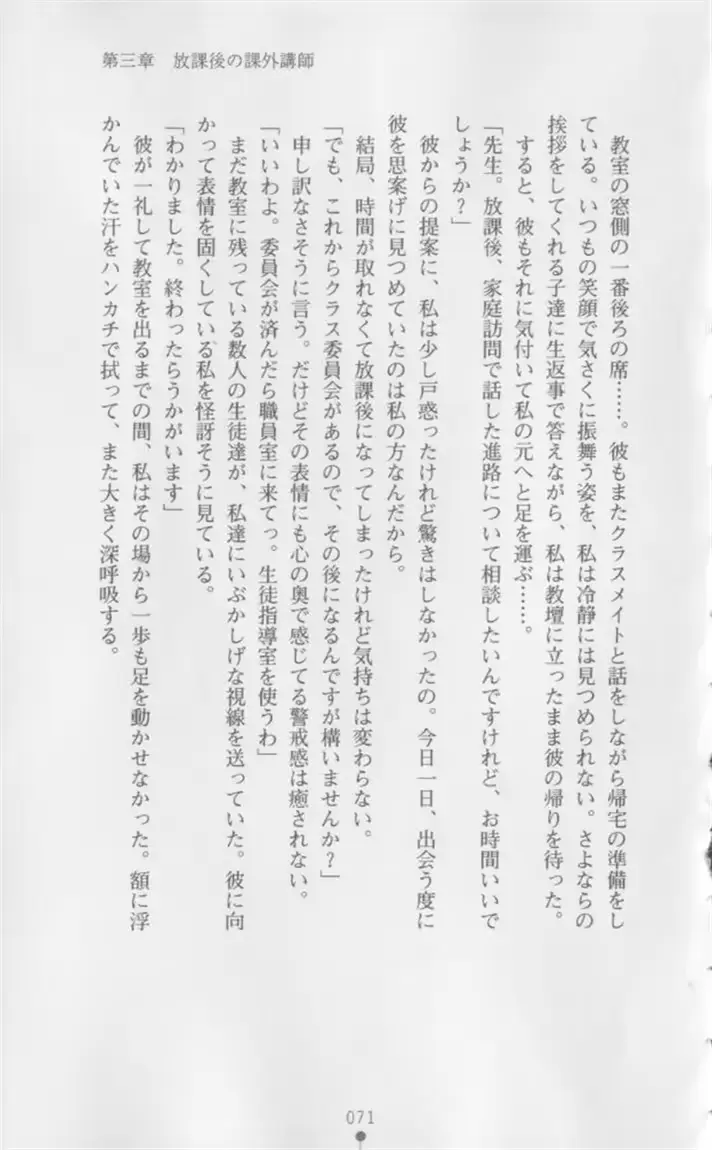 第三章　放課後の課外講師
　教室の窓側の一番後ろの席……。彼もまたクラスメイトと話をしながら帰宅の準備をし
ている。いつもの笑顔で気さくに振舞う姿を、私は冷静には見つめられない。さよならの
挨拶をしてくれる子達に生返事で答えながら、私は教壇に立ったまま彼の帰りを待った。
　すると、彼もそれに気付いて私の元へと足を運ぶ……。
「先生。放課後、家庭訪問で話した進路について相談したいんですけれど、お時間いいで
しょうか？」
　彼からの提案に、私は少し戸惑ったけれど驚きはしなかったの。今日一日、出会う度に
彼を思案げに見つめていたのは私の方なんだから。
　結局、時間が取れなくて放課後になってしまったけれど気持ちは変わらない。
「でも、これからクラス委員会があるので、その後になるんですが構いませんか？」
　申し訳なさそうに言う。だけどその表情にも心の奥で感じてる警戒感は癒されない。
「いいわよ。委員会が済んだら職員室に来てっ。生徒指導室を使うわ」
　まだ教室に残っている数人の生徒達が、私達にいぶかしげな視線を送っていた。彼に向
かって表情を固くしている私を怪訝そうに見ている。
「わかりました。終わったらうかがいます」
　彼が一礼して教室を出るまでの間、私はその場から一歩も足を動かせなかった。額に浮
かんでいた汗をハンカチで拭って、また大きく深呼吸する。
071